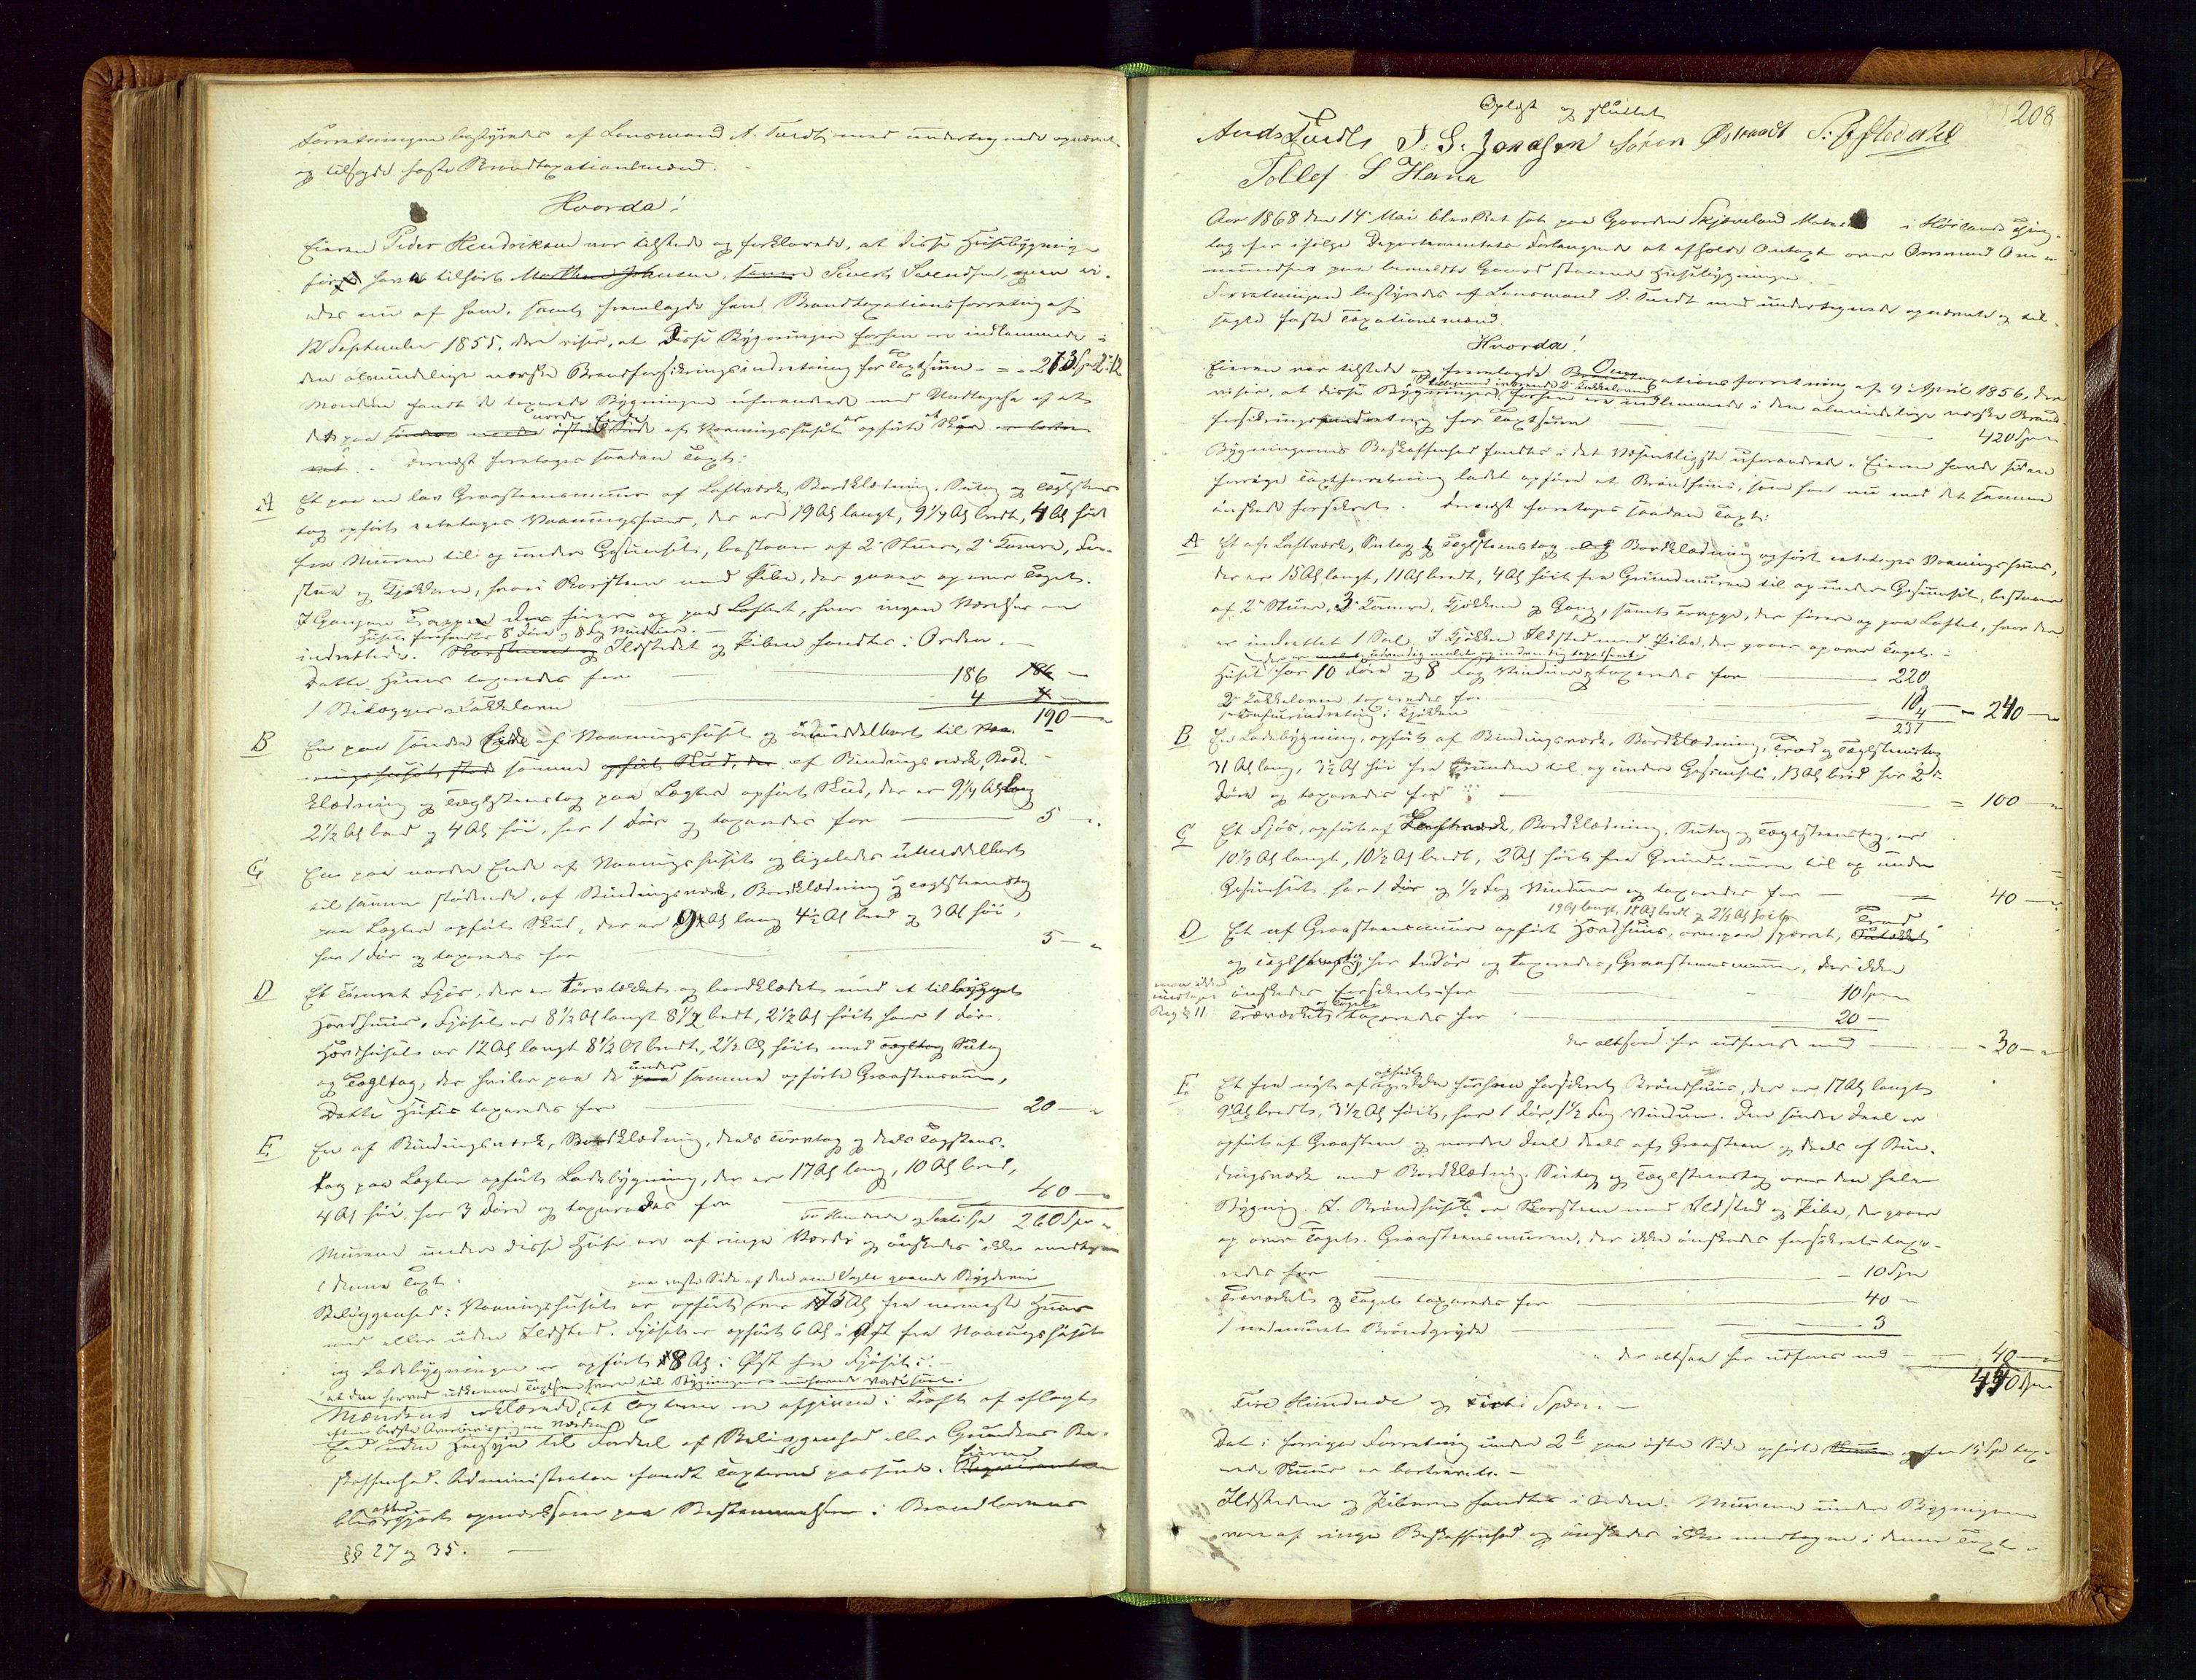 Forretningen bestyredes af Lensmand A. Tuedt med undertegnede opnævnte
og tilsagde faste Brandtaxationsmænd.
Hvorda!
Eieren Peder Hendriksen var tilstede og forklarede, at disse Huusbygninger
før have tilhørt Sivert Svendsen, men ei-
edes nu af ham, samt fremlagde han Brandtaxationsforretning af
12 September 1855, der viser, at disse Bygninger forhen ere indlemmede i
den almindelige norske Brandforsikringsindretning for Taxtsum - = - 273 Spd 2 " 12
Mændene fandt de taxerede Bygninger uforandrede med Undtagelse af at
det paa nordre Ende af Vaaningshuset er opført et Skur
Dernæst foretoges saadan Taxt:
A Et paa en lav Graasteensmuur af Laftværk, Bordklædning, Sutag og Taglsteens
tag opført eetetages Vaaningshuus, der er 19 Al langt, 9 1/4 Al bredt, 4 Al høit
fra Muren til op under Gesimset, bestaaer af 2 Stuer, 2 Kamre, For-
stue og Kjøkken, hvori Skorsteen med Pibe, der gaaer op over Taget.
I Gangen Trappe der fører op paa Loftet, hvor ingen Værelser er
Huset forefandtes 8 Døre og 8 Fag Vinduer.
indrettede. Ildstedet og Piben fandtes i Orden.
Dette Huus taxeredes for 186 —
1 Bilægger Kakkelovn 4 —
190 —
B En paa søndre Ende af Vaaningshuset og umiddelbart til
samme af Bindingsværk, Bord-
klædning og Taglsteenstag paa Lægter opført Skud, der er 9 1/4 Al lang
2 1/2 Al bred og 4 Al høi, har 1 Dør og taxeredes for 5 —
C En paa nordre Ende af Vaaningshuset og ligeledes umiddelbart
til samme stødende, af Bindingsværk, Bordklædning og Taglsteenstag
paa Lægter opført Skud, der er 9 Al lang 4 1/2 Al bred og 3 Al høi,
har 1 Dør og taxeredes for 5 —
D Et tømret Fjøs, der er tørvtækket og bordklædet med et tilbygget
Hørdhuus. Fjøset er 8 1/2 Al langt 8 1/2 bredt, 2 1/2 Al høit har 1 Dør.
Hørdhuset er 12 Al langt 8 1/2 Al bredt, 2 1/2 Al høit med Sutag
og Tagltag, der hviler paa de under samme opførte Graasteensmure,
Dette Huus taxeredes for 20 —
E En af Bindingsværk, Bordklædning, deels Tørvtag og deels Taglsteens-
tag paa Lægter opført Ladebygning, der er 17 Al lang, 10 Al bred,
4 Al høi har 3 Døre og taxeredes for 40 —
To Hundrede og Sexti Spd 260 Spd
Murene under disse Huse ere af ringe Værdi og ønskedes ikke medtagne
i denne Taxt.
paa vestre Side af den om Vagle gaaende Bygdevei
Beliggenhed: Vaaningshuset er opført 175 Al fra nærmeste Huus
med eller uden Ildsted. Fjøset er opført 6 Al i Øst fra Vaaningshuset
og Ladebygningen er opført 8 Al i Øst fra Fjøset.
Mændene erklærede, at Taxterne ere afgivne i Kraft af aflagte
Eed uden Hensyn til Fordeel af Beliggenhed eller Grundens Be-
skaffenhed. Administrator fandt Taxterne passende. Eieren
blev gjort opmærksom paa Bestemmelsen i Brandlovens
§§ 27 og 35.
208
Oplæst og sluttet
Ands Tuedt J. S. Jonassen Søren Østraadt S. Eftedahl
Tollef S Hana
Aar 1868 den 14 Mai blev Ret sat paa Gaarden Skjæveland Matr. i Høilands Thing-
lag for ifølge Departementets Forlangende at afholde Omtaxt over Ommund Om-
mundsens paa bemeldte Gaard staaende Huusbygninger.
Forretningen bestyredes af Lensmand A. Tuedt med undertegnede opnævnte og til-
sagte faste Taxationsmænd.
Hvorda!
Eieren var tilstede og fremlagde Omtaxationsforretning af 9 April 1856, der
viser, at disse Bygninger forhen ere indlemmede i den almindelige norske Brand-
forsikringsindretning for Taxtsum 420 Spd
Bygningernes Beskaffenhed fandtes i det Væsentligste uforandrede. Eieren havde siden
forrige Taxtforretning ladet opføre et Brændhuus, som han nu med det samme
ønskede forsikret. Dernæst foretoges saadan Taxt:
A Et af Laftværk, Sutag og Taglsteenstag og Bordklædning opført eetetages Vaaningshuus,
der er 15 Al langt, 11 Al bredt, 4 Al høit fra Grundmuren til op under Gesimset, bestaaer
af 2 Stuer, 3 Kamre, Kjøkken og Gang, samt Trappe, der fører op paa Loftet, hvor der
er indrettet 1 Sal. I Kjøkken Ildsted med Pibe, der gaaer op over Taget.
Huset har 10 Døre og 8 Fag Vinduer og taxeredes for 220
2 Kakkelovne taxeredes for 13 —
1 Komfurindretning i Kjøkken 4 — 240 —
237
B En Ladebygning, opført af Bindingsværk, Bordklædning, Træ og Taglsteenstag
31 Al lang, 3 1/2 Al høi fra Grunden til op under Gesimset, 13 Al bred har 2
Døre og taxeredes for = 100 —
C Et Fjøs, opført af Laftværk, Bordklædning, Sutag og Taglsteenstag, er
10 1/2 Al langt, 10 1/2 Al bredt, 2 Al høit fra Grundmuren til op under
Gesimset har 1 Dør og 1/2 Fag Vindue og taxeredes for — 40 —
D Et af Graasteensmure opført Hørdhuus, ovenpaa sperret, Træ
og Taglsteenstag, har Dør og taxeredes, Graasteensmuren, der ikke
ønskedes forsikret for 10 Spd
Træværket og Taget taxeredes for 20 —
der altsaa her udføres med - 30 —
E Et fra nyt af opført ikke forhen forsikret Brændhuus, der er 17 Al langt
9 Al bredt, 3 1/2 Al høit, har 1 Dør, 1 1/2 Fag Vinduer. Den søndre Deel er
opført af Graasteen og nordre Deel deels af Graasteen og deels af Bin-
dingsværk med Bordklædning. Sutag og Taglsteenstag over den hele
Bygning. I Brændhuset er Skorsteen med Ildsted og Pibe, der gaaer
op over Taget. Graasteensmuren, der ikke ønskedes forsikret taxe-
redes for 10 Spd
Træværket og Taget taxeredes for 40 —
1 nedmuret Brændgryde 3
der altsaa her udføres med 40 —
450 Spd
Fire Hundrede og Spdr.
Det i forrige Forretning under 2 b paa østre Side opførte og for 15 Spd tax-
erede Skuur er borttaget.
Ildstederne og Piberne fandtes i Orden. Murene under Bygningerne
vare af ringe Beskaffenhed og ønskedes ikke medtagne i denne Taxt.